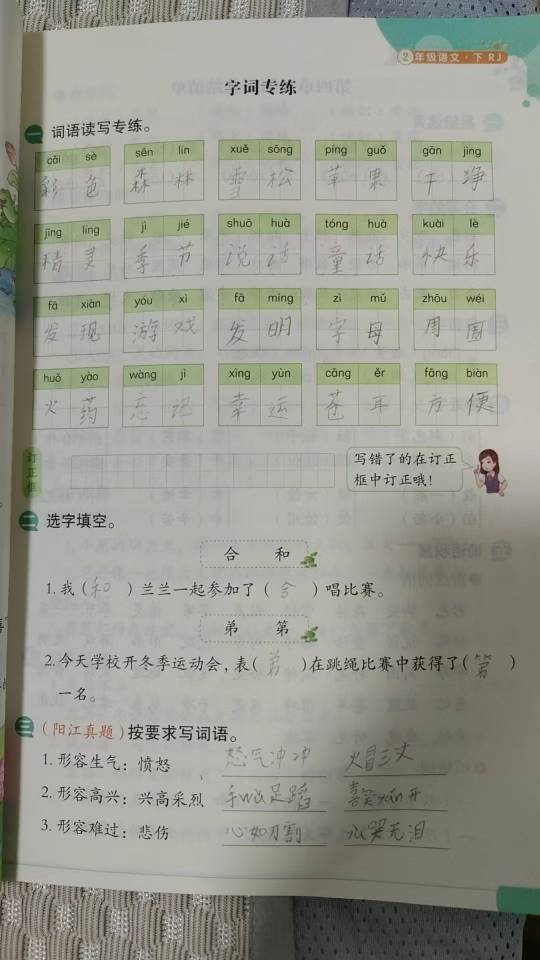 2年级语文·下 RJ
字词专练
一 词语读写专练。
cǎi sè sēn lín xuě sōng píng guǒ gān jìng
彩色 森林 雪松 苹果 干净
jīng líng jì jié shuō huà tóng huà kuài lè
精灵 季节 说话 童话 快乐
fā xiàn yóu xì fā míng zì mǔ zhōu wéi
发现 游戏 发明 字母 周围
huǒ yào wàng jì xìng yùn cāng ěr fāng biàn
火药 忘记 幸运 苍耳 方便
订正框
写错了的在订正
框中订正哦!
二 选字填空。
合 和
1.我(和)兰兰一起参加了(合)唱比赛。
弟 第
2.今天学校开冬季运动会,表(弟)在跳绳比赛中获得了(第)
一名。
三 (阳江真题)按要求写词语。
1.形容生气:愤怒 怒气冲冲 火冒三丈
2.形容高兴:兴高采烈 手wǔ足蹈 喜笑yán开
3.形容难过:悲伤 心如刀割 哭无泪